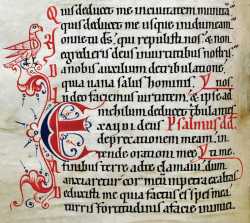 Quis deducet me in ciuitatem munitā
quis deducet me usque in idumeam.
Nonne tu dš qui repulisti nos & non
egredieris deus in uirtutibus nostris
Da nobis auxilium de tribulatione
quia uana salus hominis.
In deo faciemus uirtutem & ipse ad
nichilum deducet tribulantes
Exaudi deus Psalmus dd.
deprecationem meam in
tende orationi mee
dum
anxiaretur cor meum in petra exaltasti
Deduxisti me quia factus es spes mea
turris fortitudinis a facie inimici